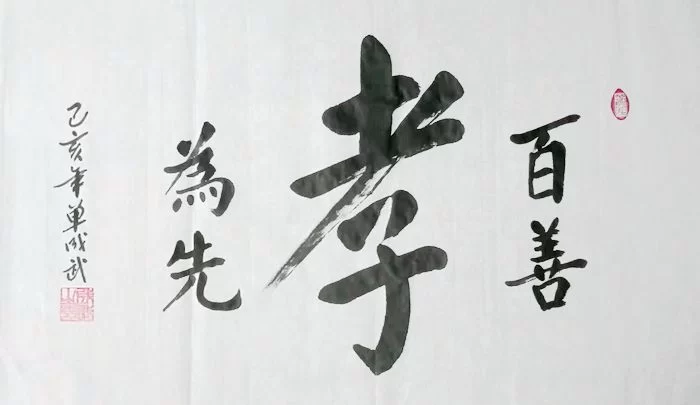 百善
孝
為先
己亥年單成武